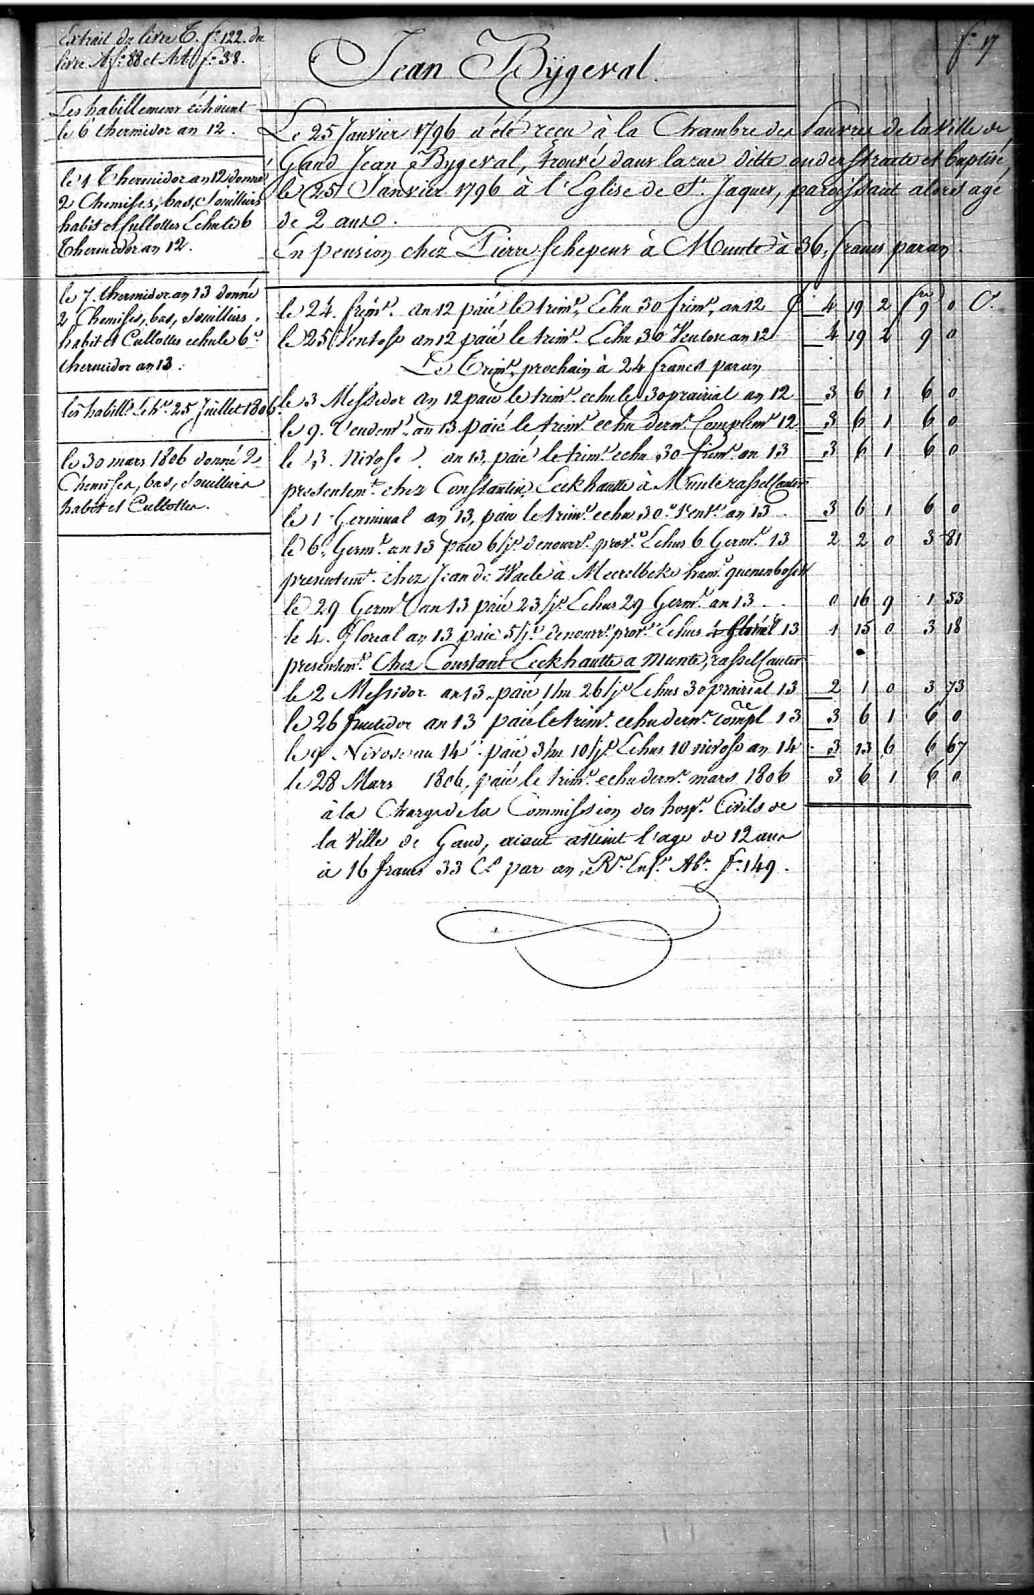 fo. 17
Extrait du livre C. fo. 122. du
livre A fo. 88 et fo. 38.
Jean Bÿgeval.
Les habillemens échéront
le 6 thermidor an 12.
le 1 Thermidor an 12 donné
2 Chemises, bas, Souilliers
habit et Cullottes Echu le 6
Thermidor an 12.
le 7. thermidor an 13 donné
2 Chemises, bas, souilliers,
habit et Cullottes echu le 6e
thermidor an 13.
les habillts. Ech. 25 Juillet 1806.
le 30 mars 1806 donné 2
Chemises, bas, Souilliers
habit et Cullottes.
Le 25 Janvier 1796 a été recu à la Chambre des Pauvres de la ville de
Gand Jean Bygeval, trouvé dans la rue ditte onderstraete et baptisé
le 25 Janvier 1796 à l'Eglise de St. Jaques, paroissant alors agé
de 2 ans.
En pension chez Pierre Schepens à Munte à 36, francs par an
le 24. frimre. an 12 paié le trimre. Echu 30 frimre. an 12 4 19 2 frs 9 0 Cs.
le 25 Ventose an 12 paié le trimre. Echu 30 Ventose an 12 4 19 2 9 0
Le Trimre. prochain à 24 francs par an
le 3 Messidor an 12 paié le trimre. echu le 30 prairial an 12 3 6 1 6 0
le 9. Vendemre. an 13 paié le trimre. echu dernr. Complemre. 12 3 6 1 6 0
le 3. Nivose an 13, paié le trimre. echu 30 frimre. an 13 3 6 1 6 0
presentemt. chez Constantin Eeckhautte à Munte
le 1 Germinal an 13, paié le trimre. echu 30. Vente. an 13 3 6 1 6 0
le 6. Germl. an 13 paié 6 js. Echus 6 Germl. 13 2 2 0 3 81
presentemt. chez Jean de Waele à Meerelbeke ham.
le 29 Germl. an 13 paié 23 js. Echus 29 Germl. an 13 0 16 9 1 53
le 4. floreal an 13 paié 5 js. Echus 4 floreal 13 1 15 0 3 18
presentemt. Chez Constant Eeckhautte a Munte,
le 2 Messidor an 13 paié 1 m 26 js Echus 30 prairial 13 2 1 0 3 73
le 26 fructidor an 13 paié le trimre. echu dernr. compl 13 3 6 1 6 0
le 9 Nivose an 14 paié 3 m 10 js Echus 10 nivose an 14 3 13 6 6 67
le 28 Mars 1806, paié le trimre. echu dernr. mars 1806 3 6 1 6 0
à la Charge de la Commission des hosp. Civils de
la Ville de Gand, aiant atteint l'age de 12 ans
à 16 francs 33 Cs par an, fo. 149.